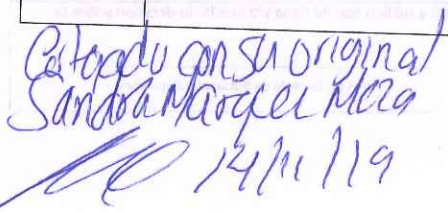 Cotejado con su original
Sandra Marquez Meza
14/11/19